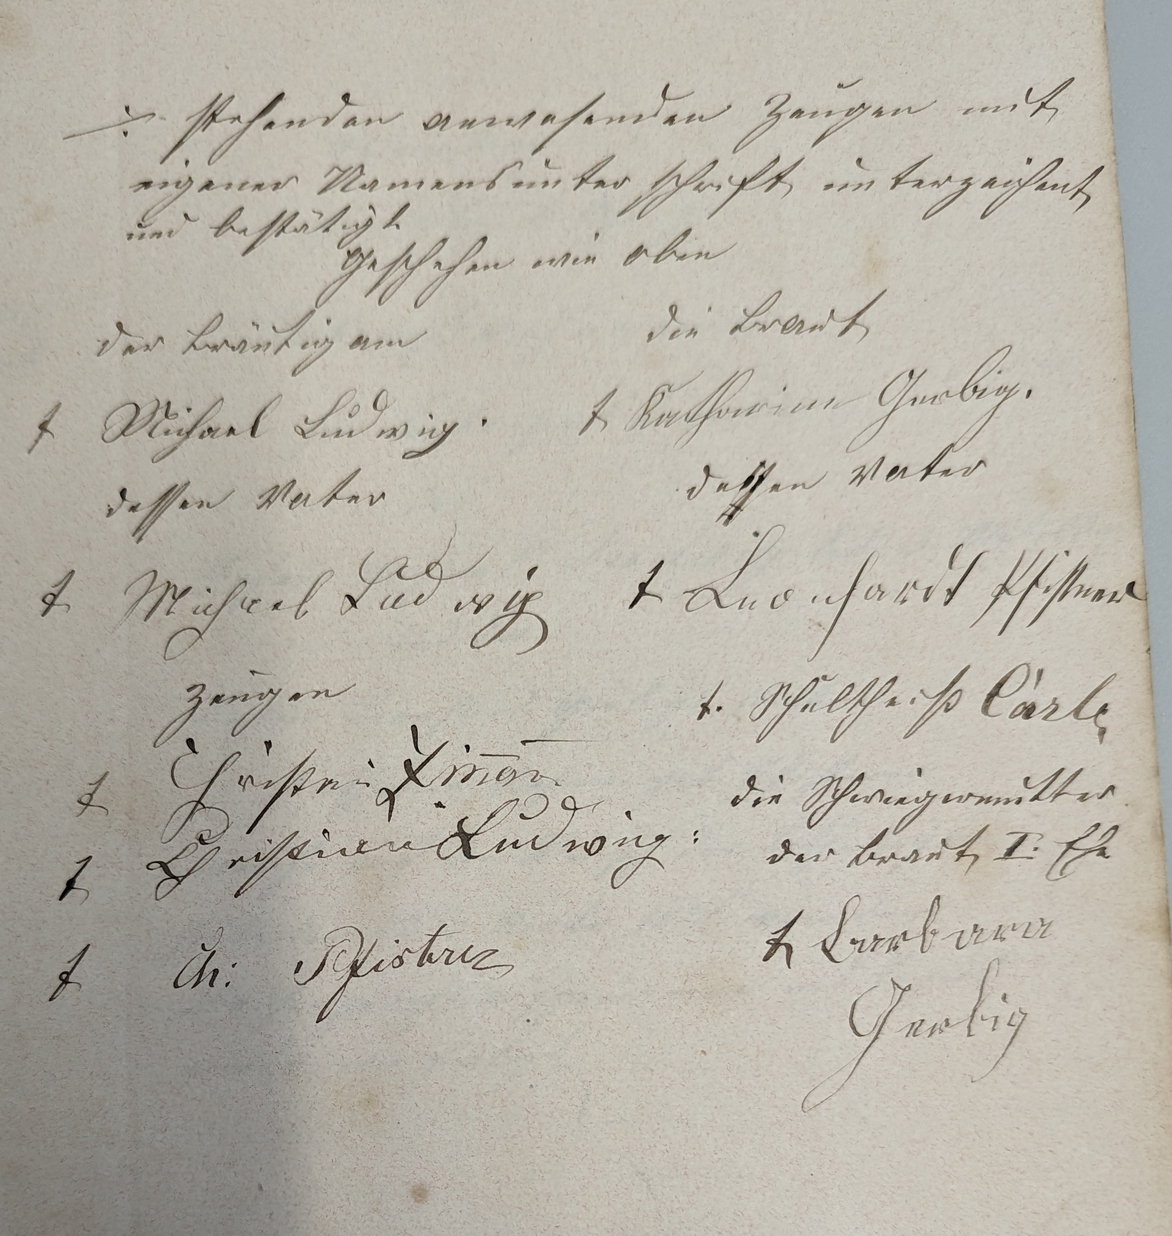 ÷ stehenden anwesenden Zeugen mit
eigener Namensunterschrift unterzeichnet
und bestätigt
Geschehen wie oben
der Bräutigam
† Michael Ludwig.
dessen Vater
† Michael Ludwig
Zeugen
† Christian
† Christian Ludwig:
† Ch: Pfisterer
die Braut
† Katharina Gerbig.
dessen Vater
† Leonhardt Pfisterer
†. Schultheiß Carle
die Schwiegermutter
der Braut I: Ehe
† Barbara
Gerbig